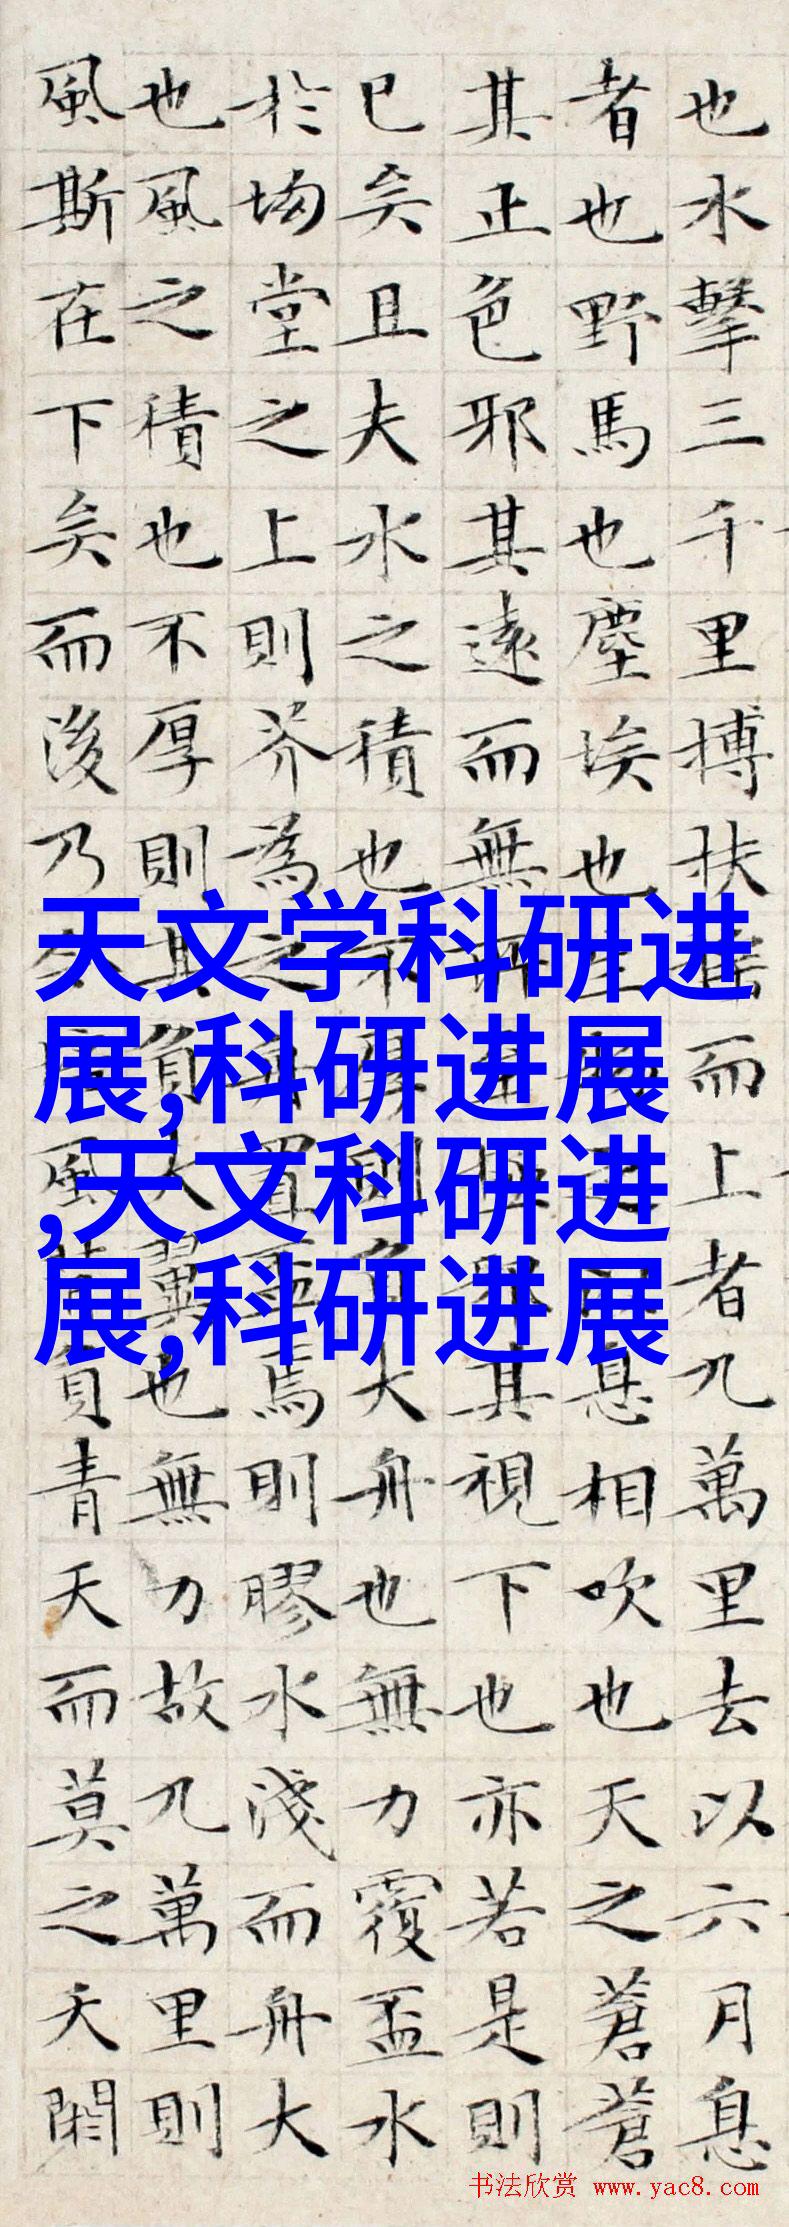 也水擊三千里搏扶而上者九萬里去以六月息
者也野馬也塵埃也息相吹也天之蒼蒼
其正色邪其遠而無其視下也亦若是則
已矣且夫水之積也不則大舟也無力覆盃水
於坳堂之上則芥為之舟置焉則膠水淺而舟大
也風之積也不厚則其負大翼也無力故九萬里則
風斯在下矣而後乃風負青天而莫之夭閼
天文学科研进
展,科研进展
,天文科研进
展,科研进展
书法欣赏 www.yac8.com